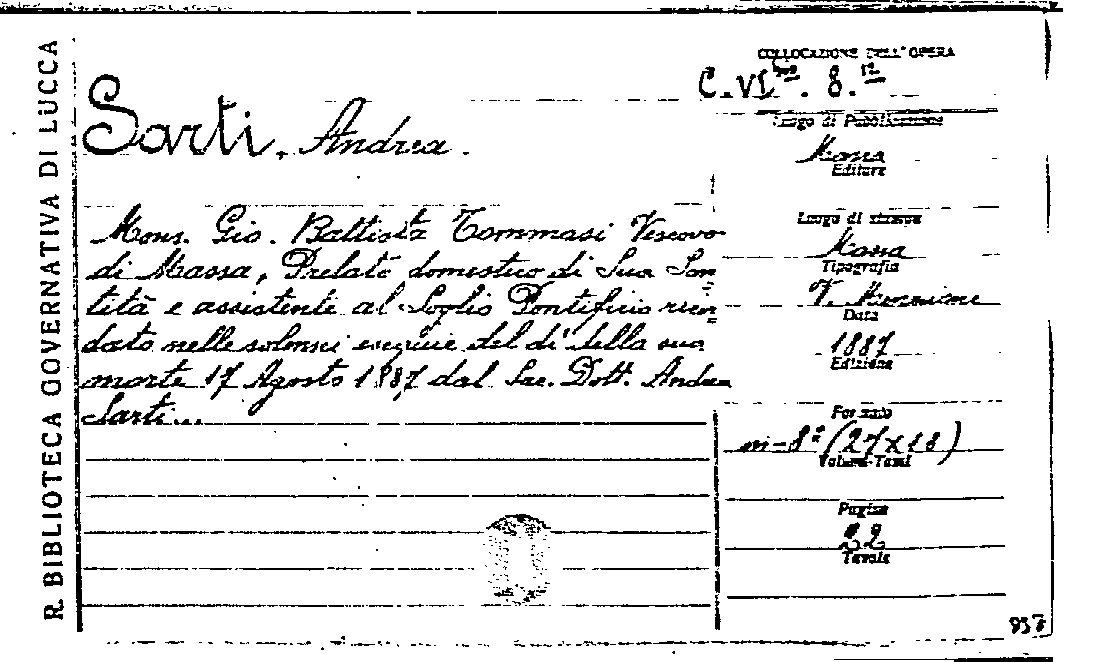 R. BIBLIOTECA GOVERNATIVA DI LUCCA
Sarti, Andrea.
Mons. Gio. Battista Tommasi Vescovo
di Massa, Prelato domestico di Sua San
tità e assistente al Soglio Pontificio ricor
dato nelle solenni esequie del dì della sua
morte 17 Agosto 1887 dal Sac. Dott. Andrea
Sarti...
COLLOCAZIONE DELL'OPERA
C. VI. 8.
Luogo di Pubblicazione
Massa
Editore
Luogo di stampa
Massa
Tipografia
V.
Data
1887
Edizione
Formato
in-8° (27x18)
Volumi-Tomi
Pagine
22
Tavole
957